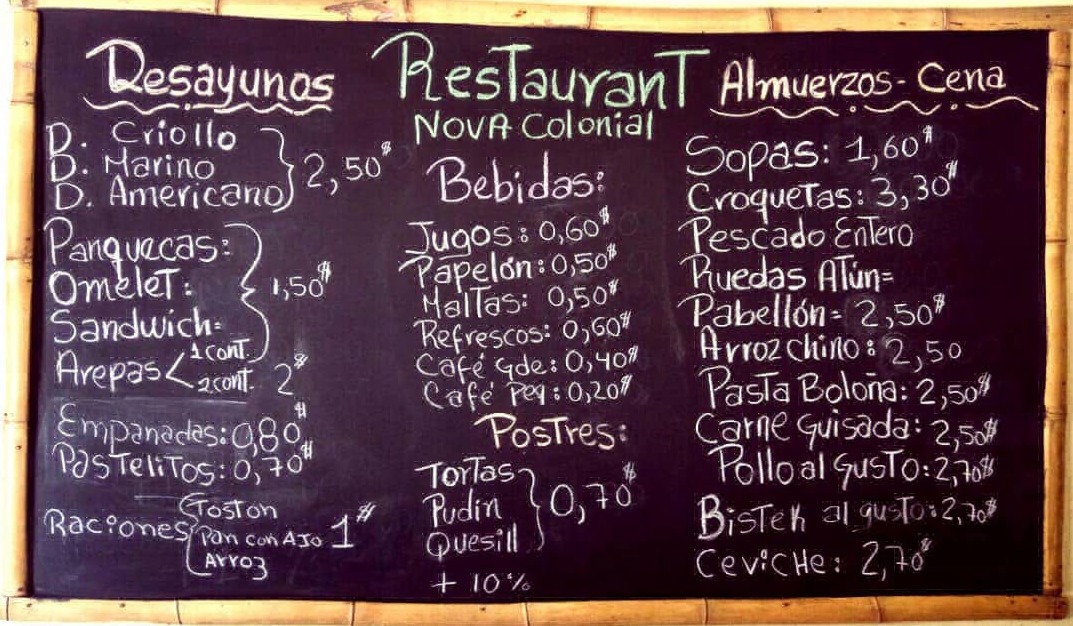 Desayunos
D. Criollo
D. Marino
D. Americano
2,50$
Panquecas:
Omelet:
Sandwich=
1,50$
Arepas < 1 cont.
2 cont. 2$
Empanadas: 0,80$
Pastelitos: 0,70$
Raciones
Toston
Pan con Ajo
Arroz
1$
Restaurant
Nova Colonial
Bebidas:
Jugos: 0,60$
Papelón: 0,50$
Maltas: 0,50$
Refrescos: 0,60$
Café Gde: 0,40$
Café Peq: 0,20$
Postres:
Tortas
Pudin
Quesill
0,70$
+ 10%
Almuerzos - Cena
Sopas: 1,60$
Croquetas: 3,30$
Pescado Entero
Ruedas Atún=
Pabellón= 2,50$
Arroz chino: 2,50
Pasta Boloña: 2,50$
Carne Guisada: 2,50$
Pollo al Gusto: 2,70$
Bistek al gusto: 2,70$
Ceviche: 2,70$